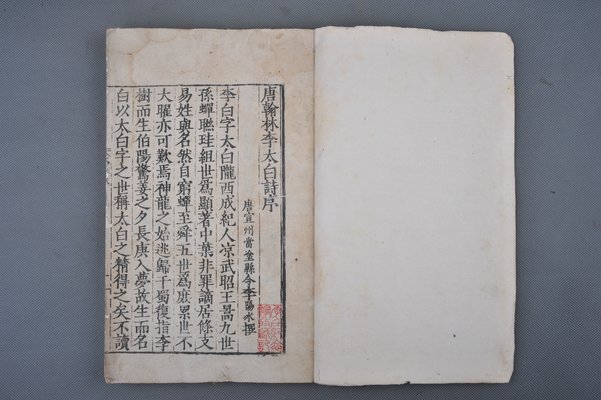 唐翰林李太白詩序
唐宣州當塗縣令李陽冰撰
李白字太白隴西成紀人凉武昭王暠九世
孫蟬聮珪組世爲顯著中葉非罪謫居條支
易姓與名然自窮蟬至舜五世爲庶累世不
大曜亦可歎焉神龍之始逃歸于蜀復指李
樹而生伯陽驚姜之夕長庚入夢故生而名
白以太白字之世稱太白之精得之矣不讀